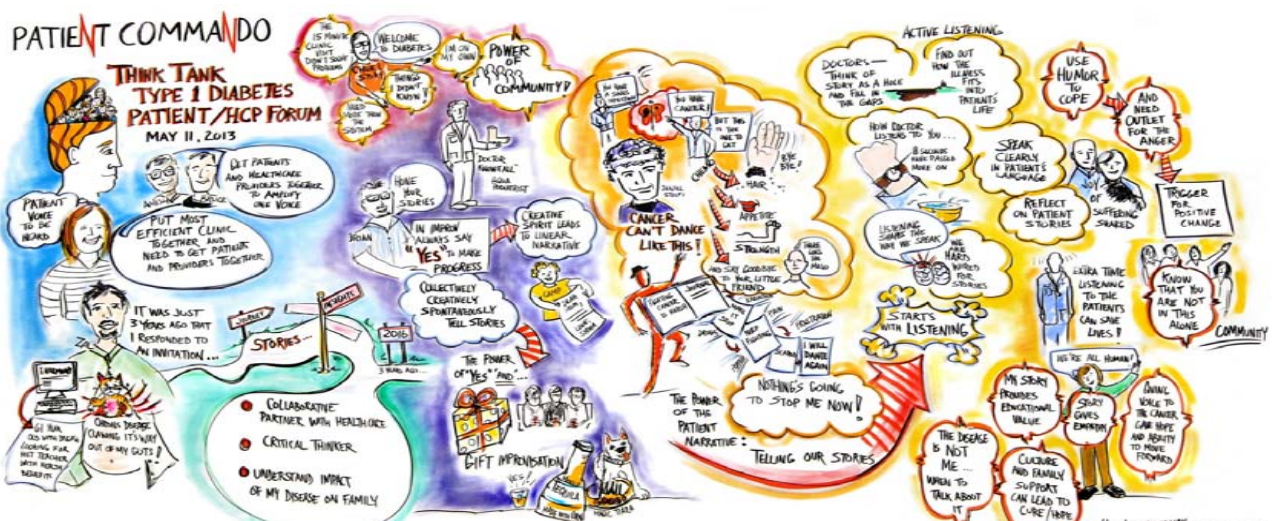 PATIENT COMMANDO
THINK TANK
TYPE 1 DIABETES
PATIENT/HCP FORUM
MAY 11, 2013
GET PATIENTS
AND HEALTHCARE
PROVIDERS TOGETHER
TO AMPLIFY
ONE VOICE
PATIENT
VOICE
TO BE
HEARD
PUT MOST
EFFICIENT CLINIC
TOGETHER AND
NEED TO GET PATIENT
AND PROVIDERS TOGETHER
IT WAS JUST
3 YEARS AGO THAT
I RESPONDED TO
AN INVITATION...
CHRONIC DISEASE
CLAWING IT'S WAY
OUT OF MY GUTS!
JOURNEY
INSIGHTS
STORIES...
2016
3 YEARS AGO...
COLLABORATIVE
PARTNER WITH HEALTHCARE
CRITICAL THINKER
UNDERSTAND IMPACT
OF MY DISEASE ON FAMILY
THE
15 MINUTE
CLINIC
VISIT
DIDN'T SOLVE
PROBLEMS
WELCOME
TO DIABETES
I'M ON
MY OWN
THINGS
I DIDN'T
KNOW!
POWER
OF
COMMUNITY!
DOCTOR
KNOW IT ALL
HONE
YOUR
STORIES
BRIAN
IN IMPROV
ALWAYS SAY
"YES" TO MAKE
PROGRESS
CREATIVE
SPIRIT LEADS
TO LINEAR
NARRATIVE
COLLECTIVELY
CREATIVELY
SPONTANEOUSLY
TELL STORIES
THE POWER
OF "YES" AND...
GIFT IMPROVISATION
YES!
TEQUILA
YOU HAVE
CANCER!
BUT THIS
IS THE
ONE TO
GET
BYE
BYE!
HAIR
APPETITE
STRENGTH
AND SAY GOODBYE
TO YOUR LITTLE
FRIENDS
CANCER
CAN'T DANCE
LIKE THIS!
FIGHTING
CANCER
IS HARD
JOURNAL
PAIN
KEEP
FIGHTING
I WILL
DANCE
AGAIN
NOTHING'S GOING
TO STOP ME NOW!
THE POWER
OF THE
PATIENT
NARRATIVE:
TELLING OUR STORIES
ACTIVE LISTENING
DOCTORS—
THINK OF
STORY AS A HOLE
AND FILL IN
THE GAPS
FIND OUT
HOW THE
ILLNESS
FITS
INTO
PATIENT'S
LIFE
HOW DOCTOR
LISTENS TO YOU...
8 SECONDS
HAVE PASSED
MOVE ON
SPEAK
CLEARLY
IN PATIENT'S
LANGUAGE
REFLECT
ON PATIENT
STORIES
LISTENING
SHAPES THE
WAY WE SPEAK
WE
ARE
HARD
WIRED
FOR
STORIES
STARTS
WITH LISTENING
USE
HUMOR
TO
COPE
AND
NEED
OUTLET
FOR THE
ANGER
JOY
OF
SUFFERING
SHARED
TRIGGER
FOR
POSITIVE
CHANGE
EXTRA TIME
LISTENING
TO THE
PATIENTS
CAN SAVE
LIVES!
KNOW
THAT YOU
ARE NOT
IN THIS
ALONE
COMMUNITY
WE'RE ALL HUMAN!
MY STORY
PROVIDES
EDUCATIONAL
VALUE
STORY
GIVES
EMPATHY
GIVING
VOICE TO
THE CANCER
GAVE HOPE
AND ABILITY
TO MOVE
FORWARD
THE DISEASE
IS NOT
ME...
WHEN TO
TALK ABOUT
IT
CULTURE
AND FAMILY
SUPPORT
CAN LEAD TO
CURE/HOPE